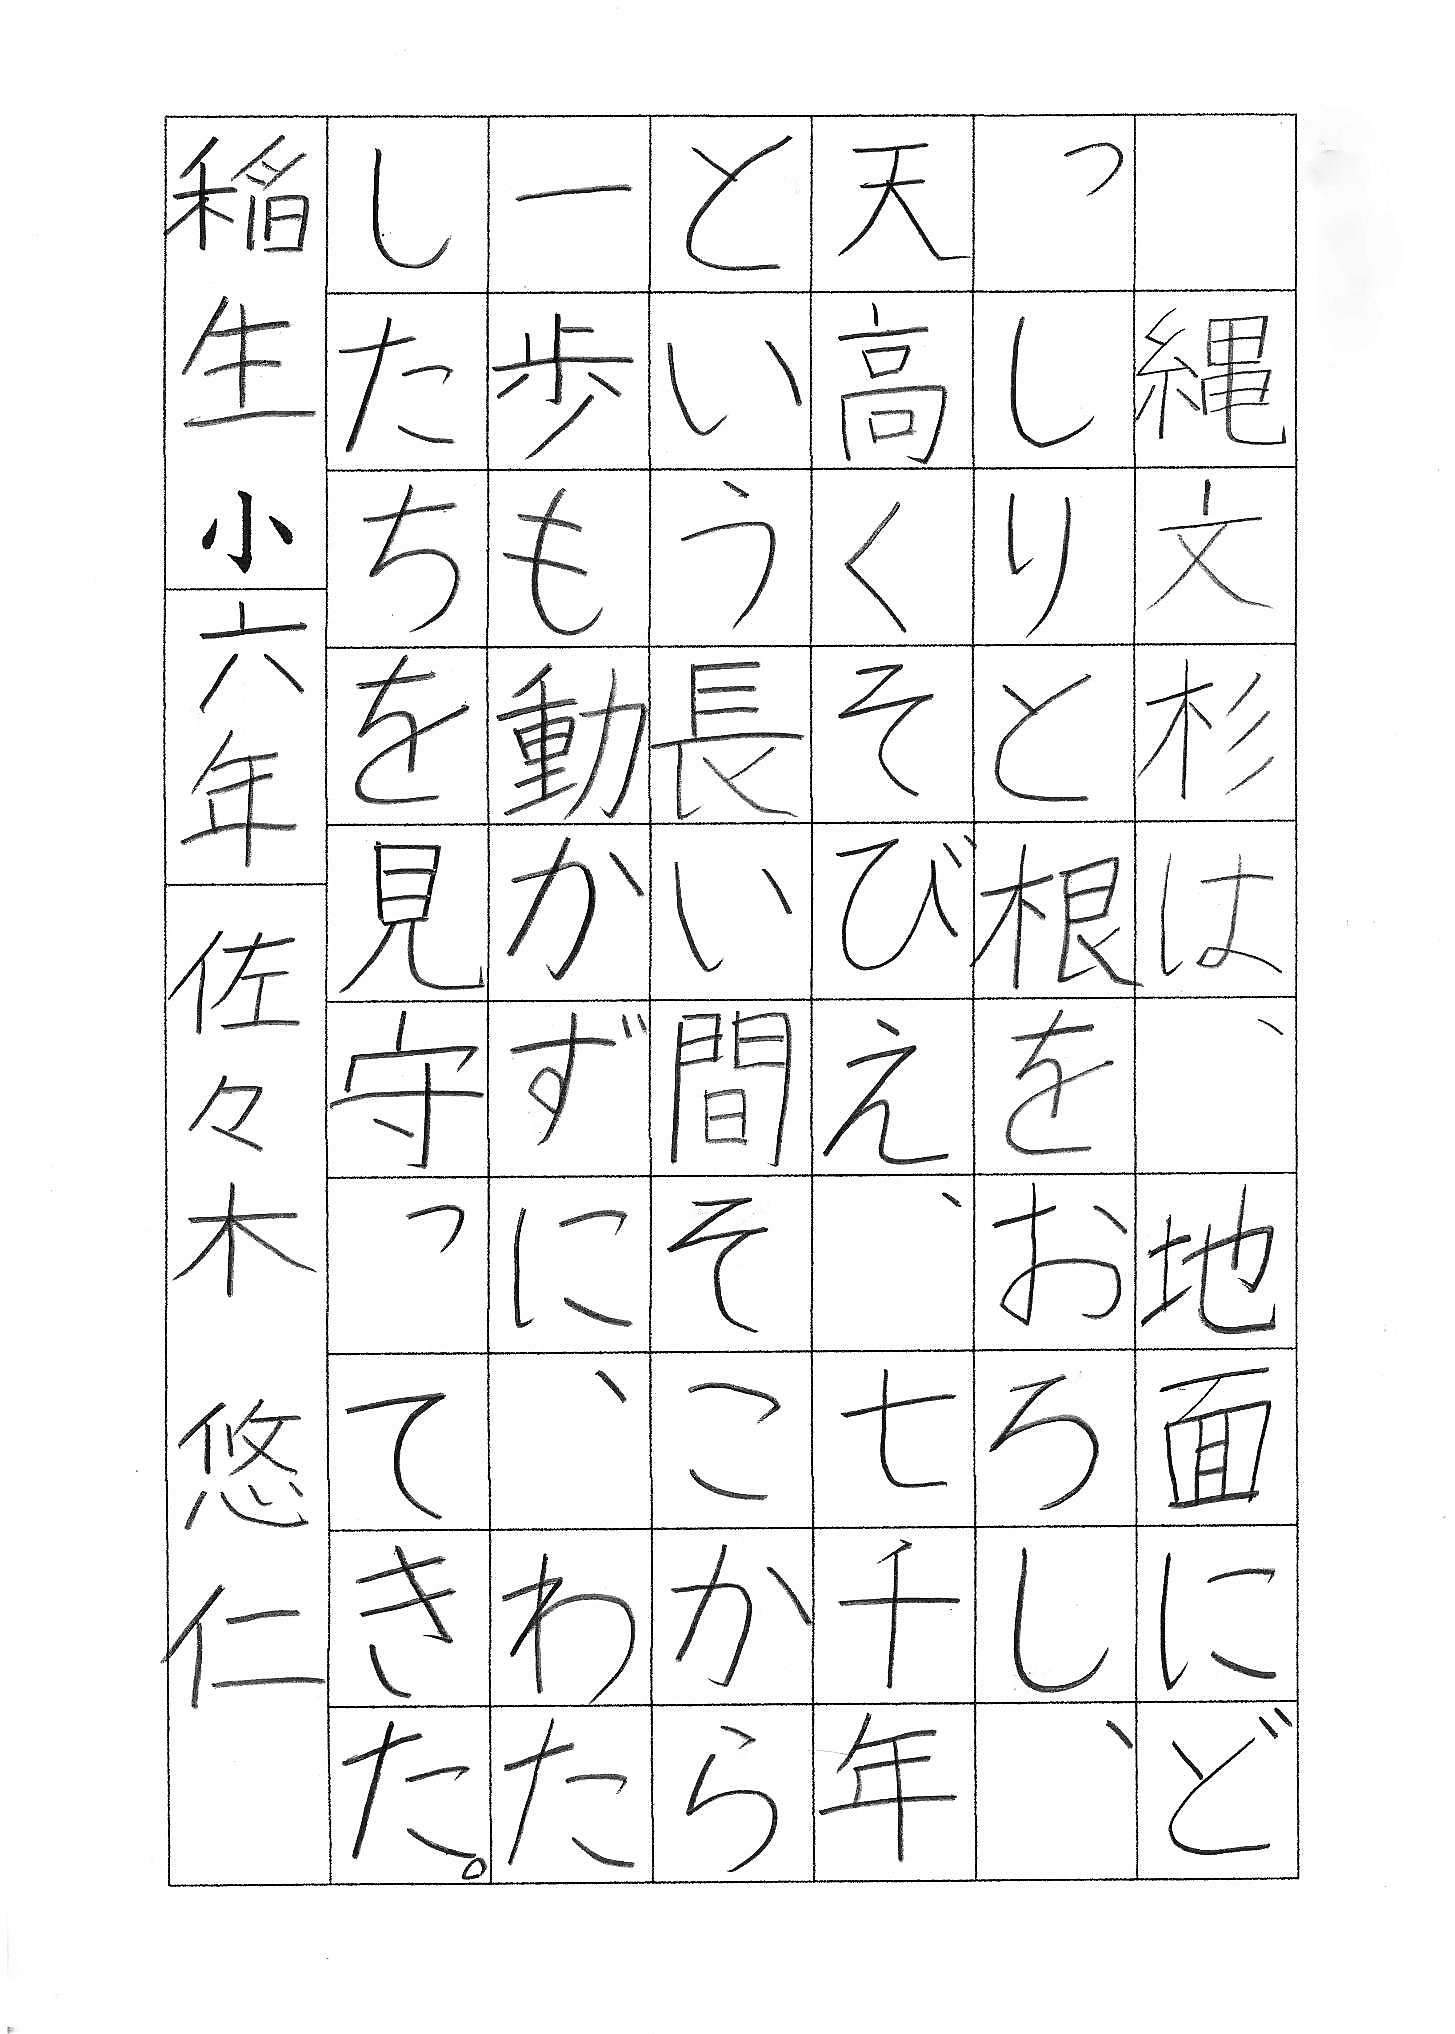 縄文杉は、地面にど
っしりと根をおろし、
天高くそびえ、七千年
という長い間そこから
一歩も動かずに、わた
したちを見守ってきた。
稲生小六年佐々木悠仁